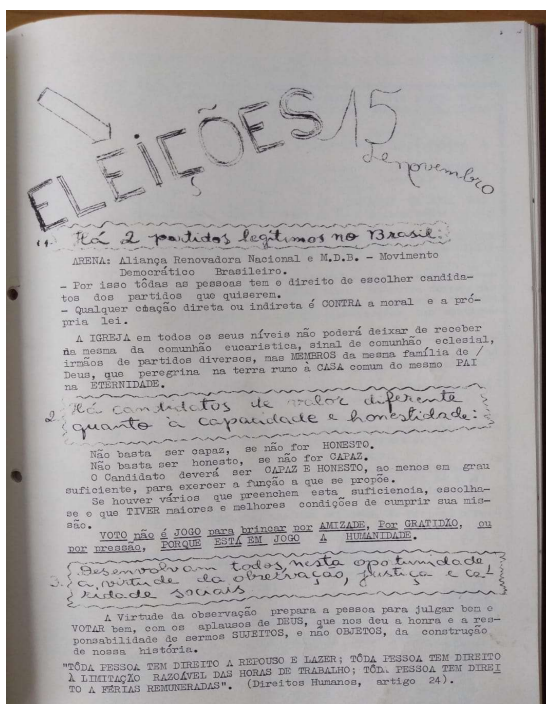 ELEIÇÕES 15
de novembro
1. Há 2 partidos legítimos no Brasil:
ARENA: Aliança Renovadora Nacional e M.D.B. - Movimento
Democrático Brasileiro.
- Por isso tôdas as pessoas tem o direito de escolher candida-
tos dos partidos que quiserem.
- Qualquer coação direta ou indireta é CONTRA a moral e a pró-
pria lei.
A IGREJA em todos os seus níveis não poderá deixar de receber
na mesma da comunhão eucaristica, sinal de comunhão eclesial,
irmãos de partidos diversos, mas MEMBROS da mesma família de /
Deus, que peregrina na terra rumo à CASA comum do mesmo PAI
na ETERNIDADE.
2. Há candidatos de valor diferente
quanto à capacidade e honestidade:
Não basta ser capaz, se não for HONESTO.
Não basta ser honesto, se não for CAPAZ.
O Candidato deverá ser CAPAZ E HONESTO, ao menos em grau
suficiente, para exercer a função a que se propõe.
Se houver vários que preenchem esta suficiencia, escolha-
se o que TIVER maiores e melhores condições de cumprir sua mis-
são.
VOTO não é JOGO para brincar por AMIZADE, Por GRATIDÃO, ou
por pressão, PORQUE ESTÁ EM JOGO A HUMANIDADE.
3. Desenvolvam todos, nesta oportunidade
a virtude da observação, justiça e ca-
ridade sociais
A Virtude da observação prepara a pessoa para julgar bem e
VOTAR bem, com os aplausos de DEUS, que nos deu a honra e a res-
ponsabilidade de sermos SUJEITOS, e não OBJETOS, da construção
de nossa história.
"TÔDA PESSOA TEM DIREITO A REPOUSO E LAZER; TÔDA PESSOA TEM DIREITO
À LIMITAÇÃO RAZOÁVEL DAS HORAS DE TRABALHO; TÔDA PESSOA TEM DIREI
TO A FÉRIAS REMUNERADAS". (Direitos Humanos, artigo 24).